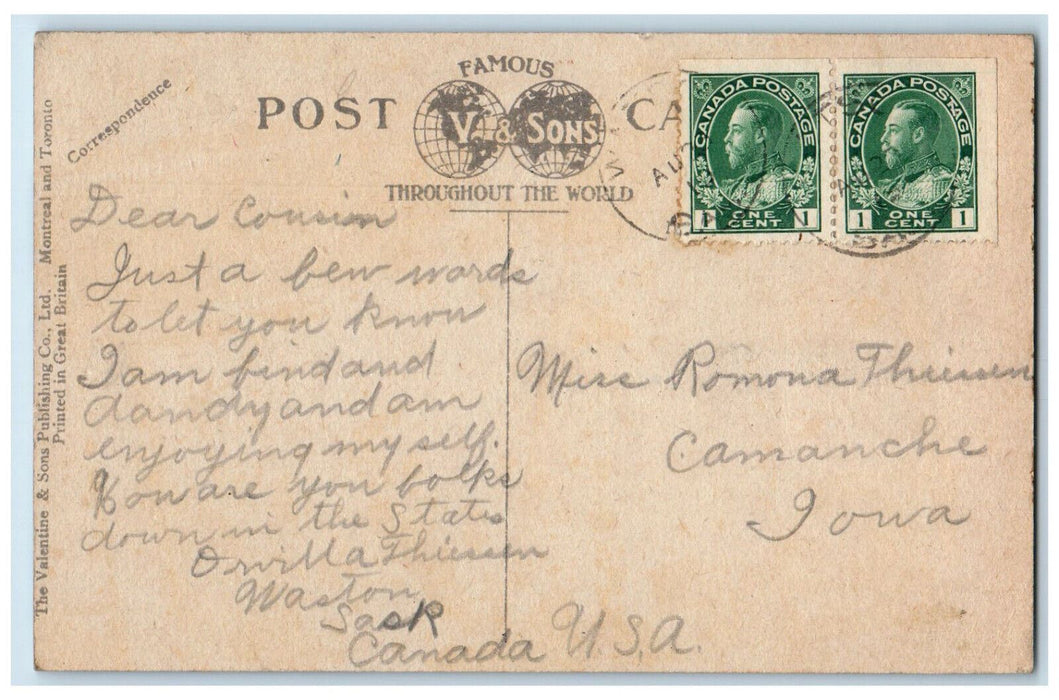 FAMOUS
POST CA
V. & SONS
THROUGHOUT THE WORLD
Correspondence
The Valentine & Sons Publishing Co., Ltd. Montreal and Toronto
Printed in Great Britain
CANADA POSTAGE
1 ONE CENT 1
CANADA POSTAGE
1 ONE CENT 1
Dear Cousin
Just a few words
to let you know
I am find and
dandy and am
enjoying my self.
How are you folks
down in the States
Orvilla Thiessen
Waston
Sask
Canada
Miss Romona Thiessen
Camanche
Iowa
U.S.A.